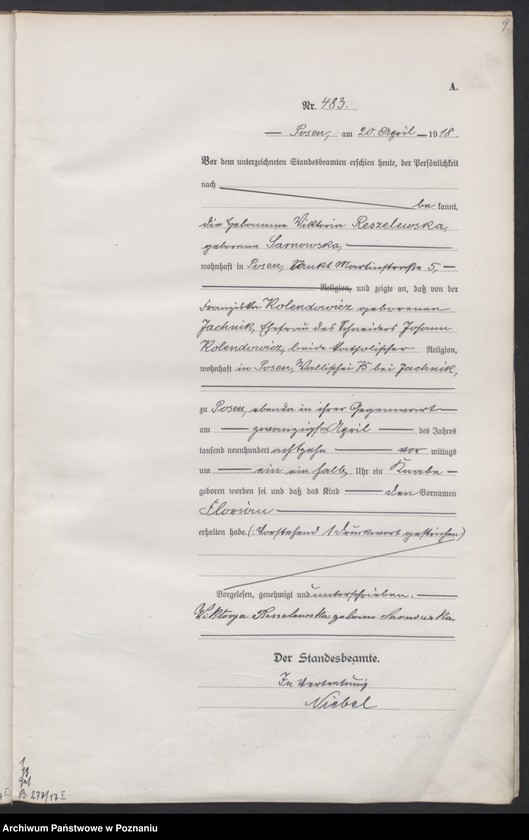 9.
A.
Nr. 483.
Posen, am 20. April 1918.
Vor dem unterzeichneten Standesbeamten erschien heute, der Persönlichkeit
nach
be kannt,
die Hebamme Viktoria Reszelewska,
geborene Sarnowska,
wohnhaft in Posen, Sankt Martinstraße 5,
Religion, und zeigte an, daß von der
Franziska Kolendowicz geborenen
Jachnik, Ehefrau des Schneiders Johann
Kolendowicz, beide katholischer Religion,
wohnhaft in Posen, Wallischei 75 bei Jachnik,
zu Posen, ebenda in ihrer Gegenwart
am zwanzigsten April des Jahres
tausend neunhundert achtzehn vor mittags
um ein ein halb Uhr ein Knabe
geboren worden sei und daß das Kind den Vornamen
Florian
erhalten habe. (Vorstehend 1 Druckwort gestrichen.)
Vorgelesen, genehmigt und unterschrieben.
Wiktorya Reszelewska geborene Sarnowska.
Der Standesbeamte.
In Vertretung
Niebel
B. 277/17 I
Archiwum Państwowe w Poznaniu